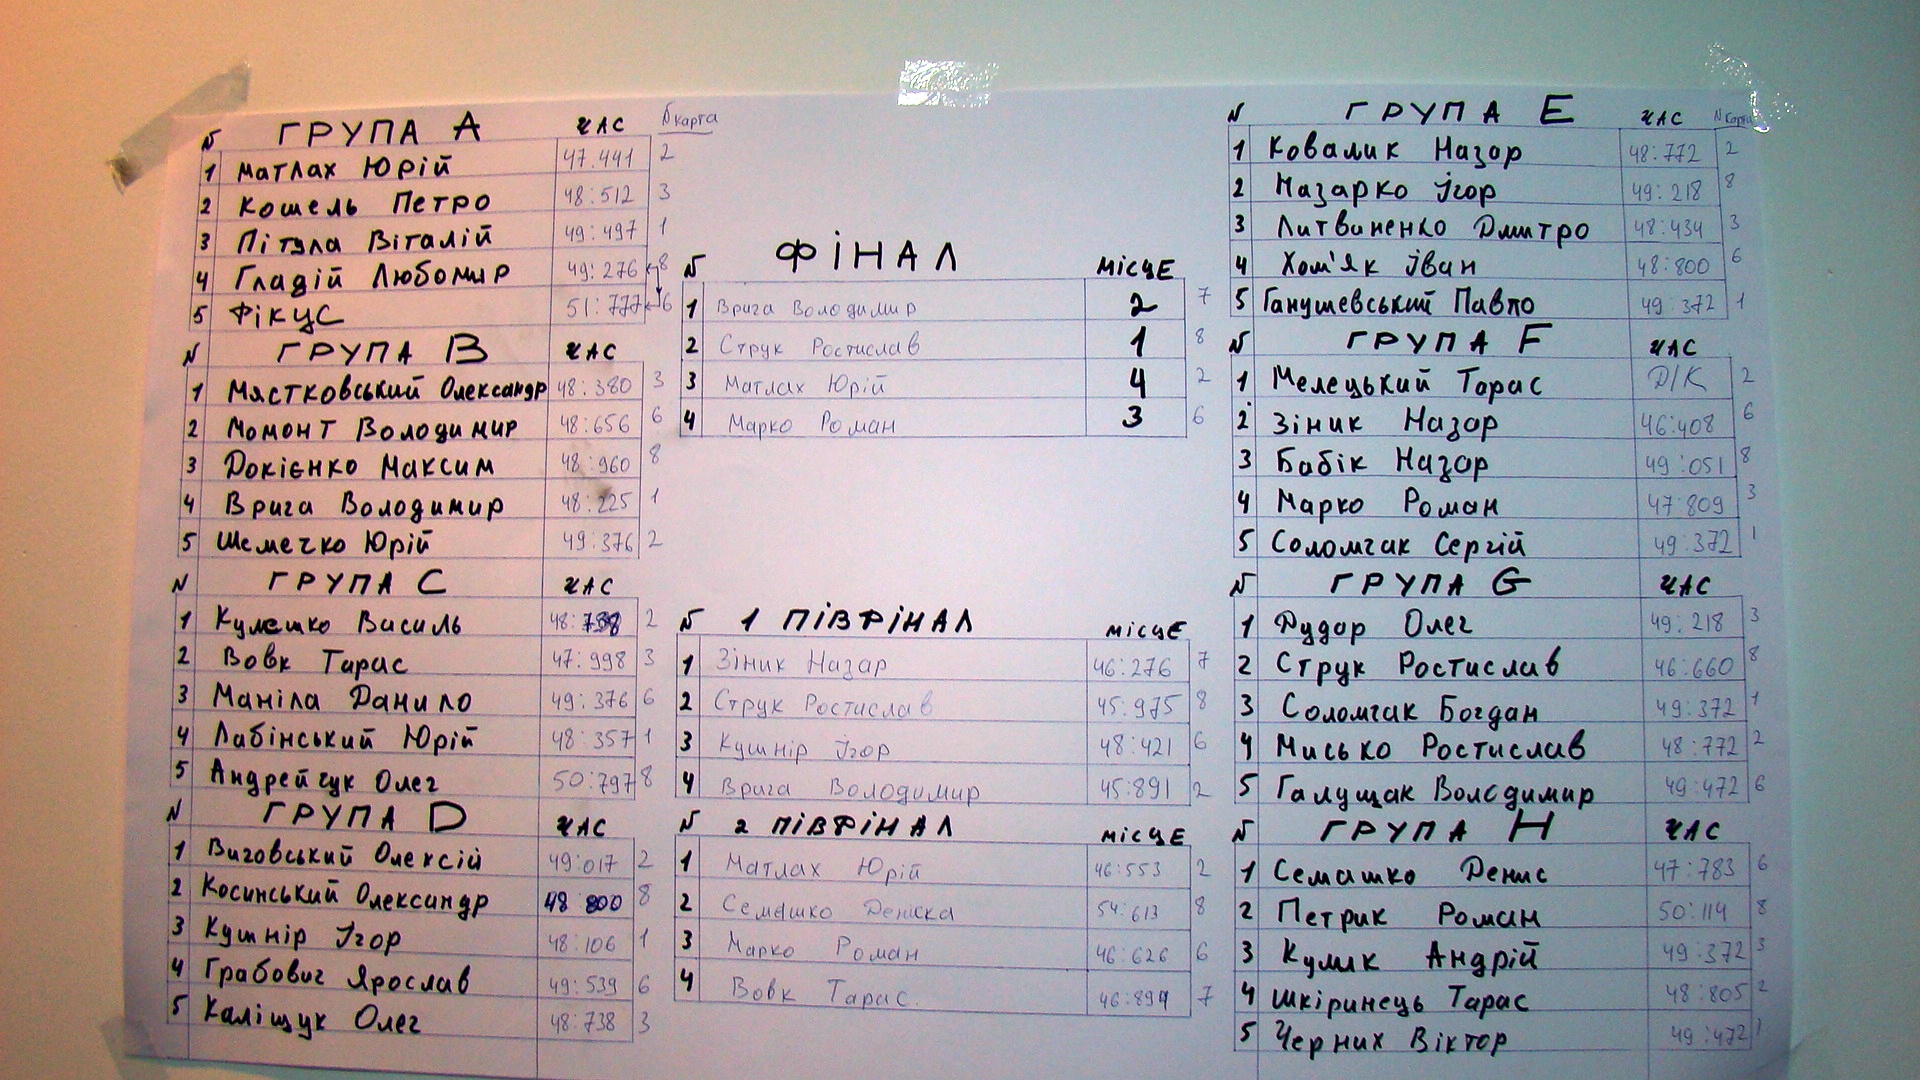 N ГРУПА A ЧАС N карта
1 Матлах Юрій 47.441 2
2 Кошель Петро 48:512 3
3 Пітула Віталій 49:497 1
4 Гладій Любомир 49:276 8
5 Фікус 51:777 6
N ГРУПА B ЧАС
1 Мястковський Олександр 48:380 3
2 Момонт Володимир 48:656 6
3 Докієнко Максим 48:960 8
4 Врига Володимир 48:225 1
5 Шемечко Юрій 49:376 2
N ГРУПА C ЧАС
1 Кулешко Василь 48: 2
2 Вовк Тарас 47:998 3
3 Маніла Данило 49:376 6
4 Лабінський Юрій 48:357 1
5 Андрейчук Олег 50:797 8
N ГРУПА D ЧАС
1 Виговський Олексій 49:017 2
2 Косинський Олександр 48 800 8
3 Кушнір Ігор 48:106 1
4 Грабович Ярослав 49:539 6
5 Каліщук Олег 48:738 3
N ФІНАЛ МІСЦЕ
1 Врига Володимир 2 7
2 Струк Ростислав 1 8
3 Матлах Юрій 4 2
4 Марко Роман 3 6
N 1 ПІВФІНАЛ МІСЦЕ
1 Зіник Назар 46:276 7
2 Струк Ростислав 45:975 8
3 Кушнір Ігор 48:421 6
4 Врига Володимир 45:891 2
N 2 ПІВФІНАЛ МІСЦЕ
1 Матлах Юрій 46:553 2
2 Семашко Дениска 54:613 8
3 Марко Роман 46:626 6
4 Вовк Тарас. 46:894 7
N ГРУПА E ЧАС N карта
1 Ковалик Назар 48:772 2
2 Назарко Ігор 49:218 8
3 Литвиненко Дмитро 48:434 3
4 Хом'як Іван 48:800 6
5 Ганушевський Павло 49:372 1
N ГРУПА F ЧАС
1 Мелецький Тарас Д/К 2
2 Зіник Назар 46:408 6
3 Бабік Назар 49:051 8
4 Марко Роман 47:809 3
5 Соломчак Сергій 49:372 1
N ГРУПА G ЧАС
1 Дудар Олег 49:218 3
2 Струк Ростислав 46:660 8
3 Соломчак Богдан 49:372 1
4 Мисько Ростислав 48:772 2
5 Галущак Володимир 49:472 6
N ГРУПА H ЧАС
1 Семашко Денис 47:783 6
2 Петрик Роман 50:114 8
3 Кулик Андрій 49.372 3
4 Шкіринець Тарас 48:805 2
5 Черних Віктор 49:472 1